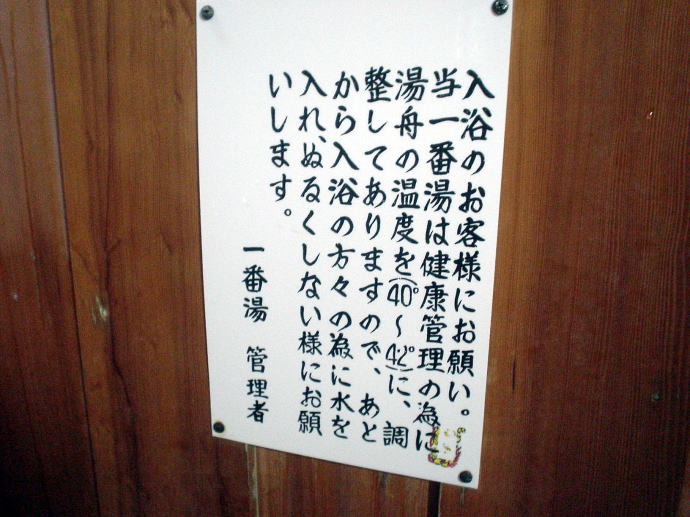 入浴のお客様にお願い。
当一番湯は健康管理の為に
湯舟の温度を(40°〜42°)に、調
整してありますので、あと
から入浴の方々の為に水を
入れ、ぬるくしない様にお願
いします。
一番湯 管理者